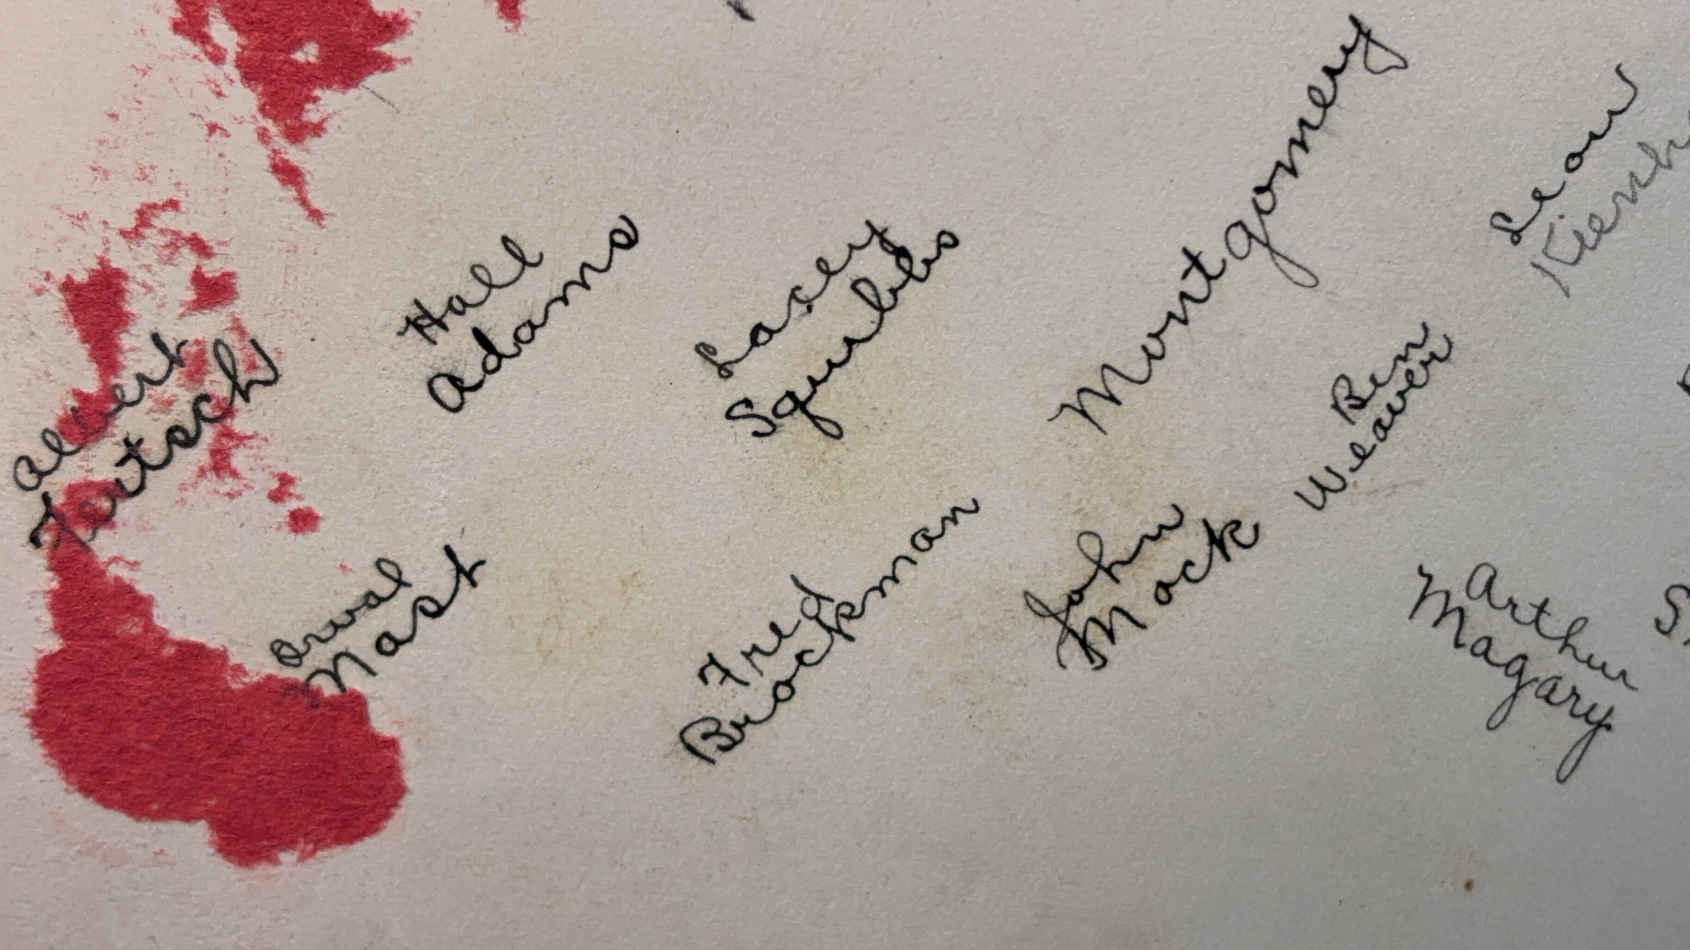 Albert
Fertsch
Hall
Adams
Lacey
Squibbs
Montgomery
Leon
Orval
Mast
Fred
Brockman
John
Mock
Ben
Weaver
Arthur
Magary